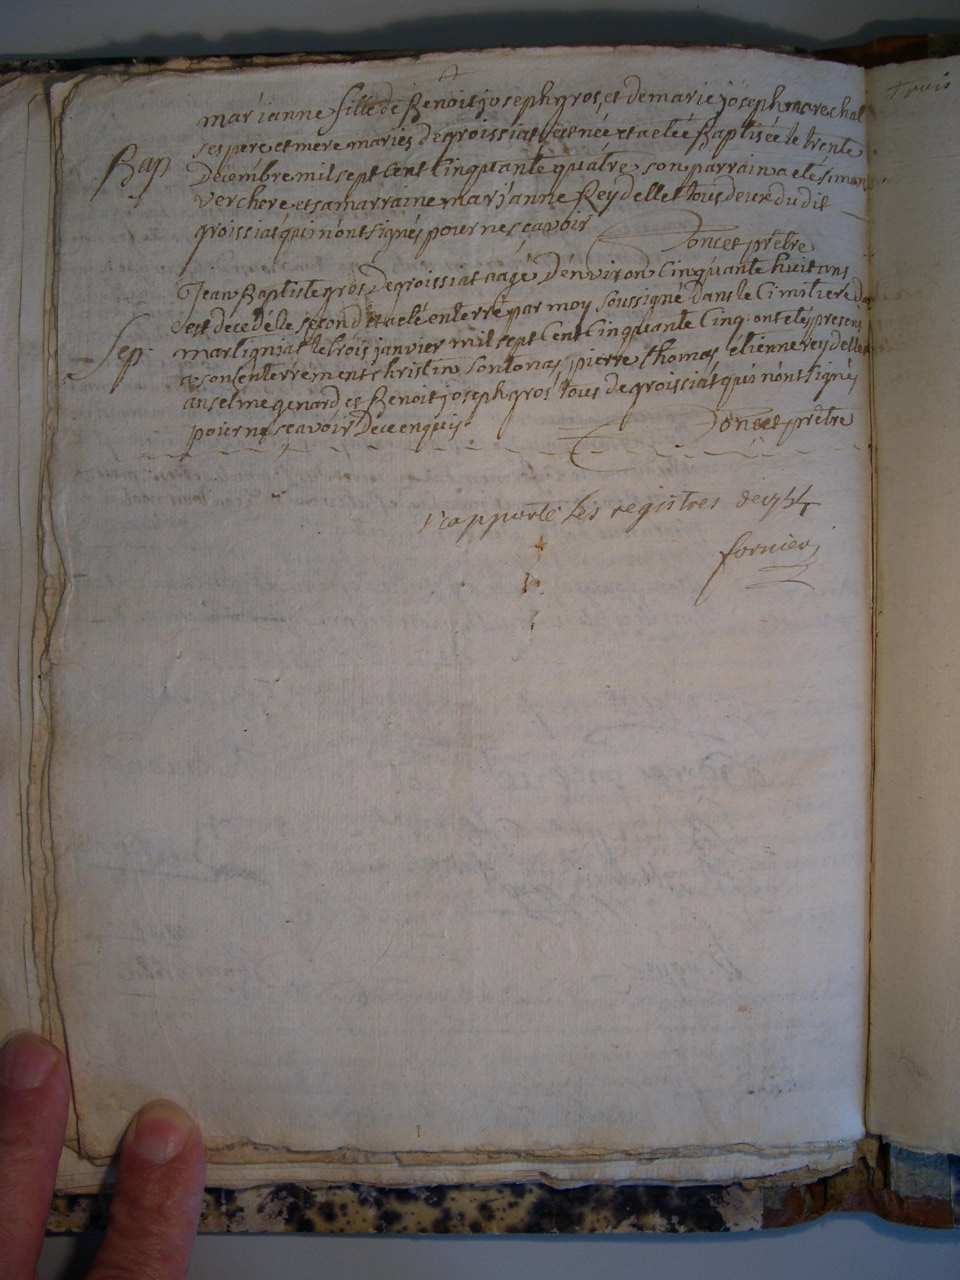 marianne fille de Benoit joseph gros, et de marie joseph marechal
ses pere et mere mariés de groissiat est née et a eté Baptisée le trente
Bap.
Décémbre mil sept Cent Cinquante quatre son parrain a eté simon
verchere et sa marraine marjanne Reydellet tous deux du dit
groissiat qui n'ont signés pour ne sçavoir
Doncet prêtre
Jean Baptiste gros de groissiat aagé D'environ Cinquante huit ans
est decedé le second et a eté enterré par moy soussigné dans le Cimitiere de
Sep.
martigniat le trois janvier mil sept Cent Cinquante Cinq. ont etés presens
a son enterrement christin sontonas, pierre thomas, etienne reydellet
anselme genard et Benoit joseph gros tous de groissiat qui n'ont signés
pour ne sçavoir De ce enquis
Doncet prêtre
Rapporté les registres de 1754
fornier
Trois